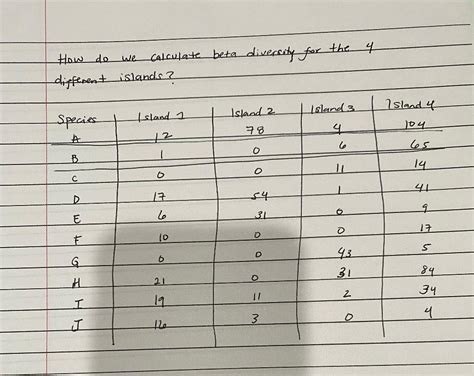 How do we calculate beta diversity for the 4
different islands?
Species Island 1 Island 2 Island 3 Island 4
A 12 78 4 104
B 1 0 6 65
C 0 0 11 14
D 17 54 1 41
E 6 31 0 9
F 10 0 0 17
G 0 0 43 5
H 21 0 31 84
I 19 11 2 34
J 16 3 0 4